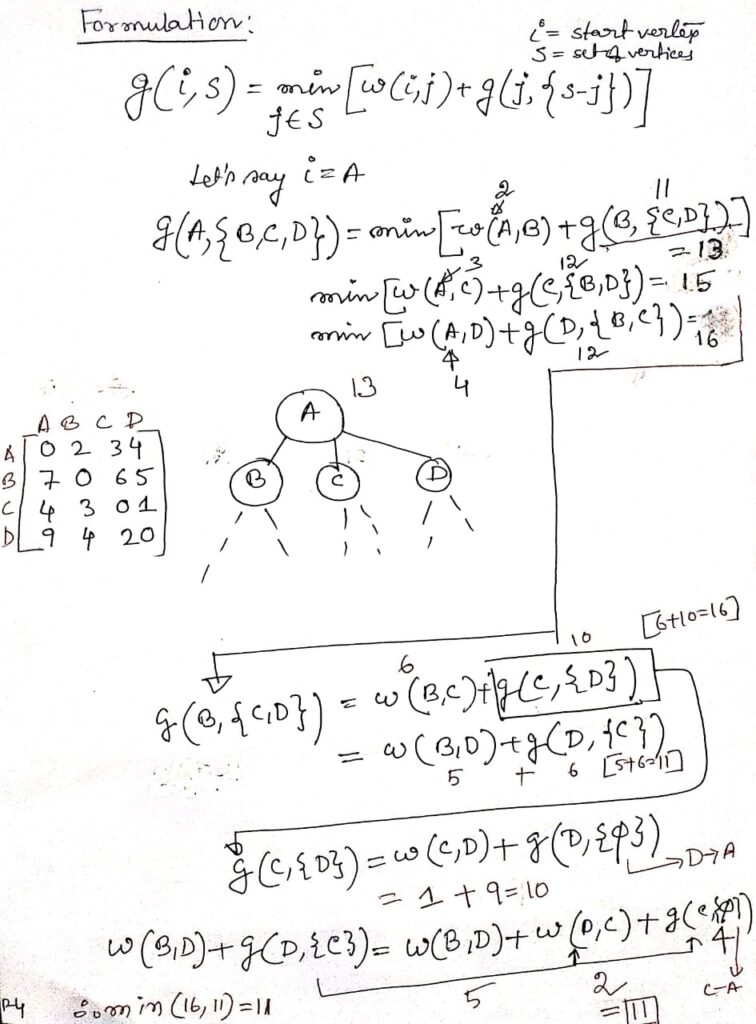 Formulation:
i = start vertex
S = set of vertices
g(i,s) = min [w(i,j) + g(j, {s-j})]
j∈S
Let's say i = A
2 11
g(A,{B,C,D}) = min [w(A,B) + g(B,{C,D})]
= 13
3 12
min [w(A,C) + g(C,{B,D}) = 15
min [w(A,D) + g(D,{B,C}) = 16
4 12
13
A
B C D
A B C D
A 0 2 3 4
B 7 0 6 5
C 4 3 0 1
D 9 4 2 0
[6+10=16]
6 10
g(B,{C,D}) = w(B,C) + g(C,{D})
= w(B,D) + g(D,{C})
5 + 6 [5+6=11]
g(C,{D}) = w(C,D) + g(D,{φ})
→D→A
= 1 + 9 = 10
w(B,D) + g(D,{C}) = w(B,D) + w(D,C) + g(C,{φ})
5 2 4
C-A
= 11
P4 ∴ min (16,11) = 11